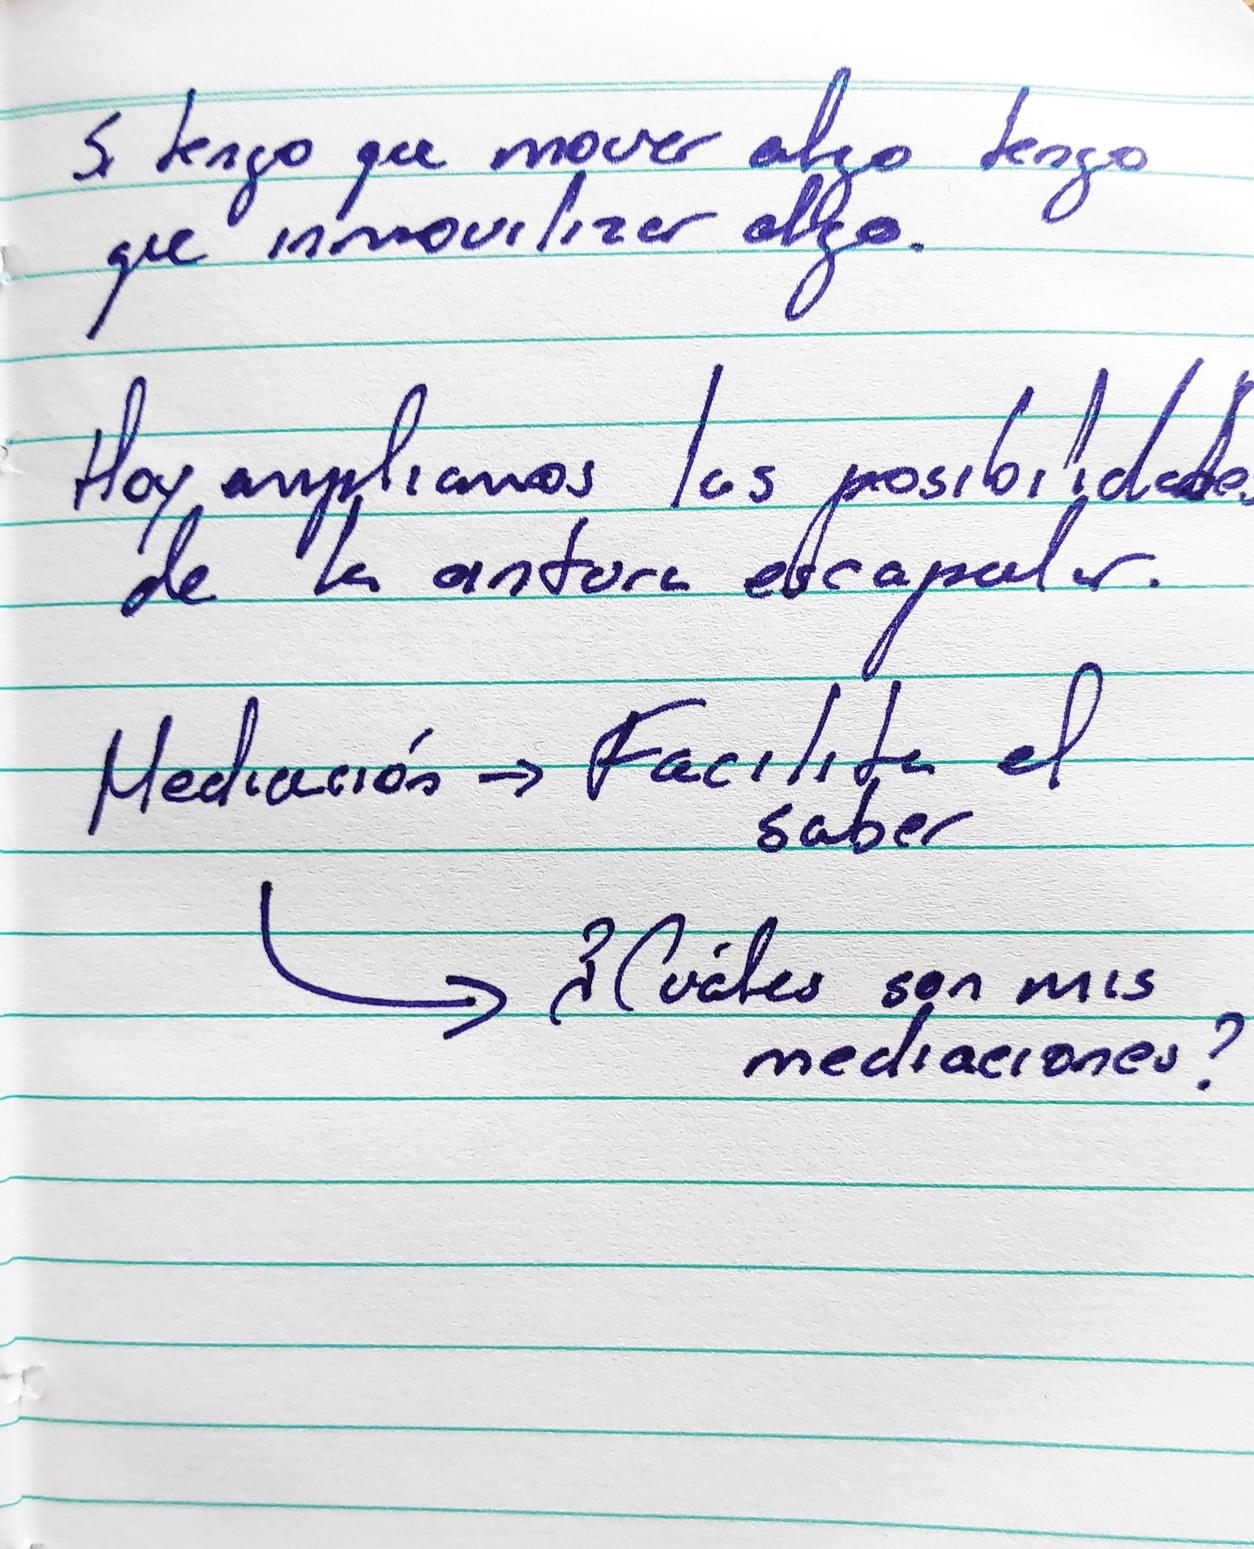 Si tengo que mover algo tengo
que inmovilizar algo.
Hoy ampliamos las posibilidades
de la cintura escapular.
Mediación → Facilita el
saber
¿Cuáles son mis
mediaciones?